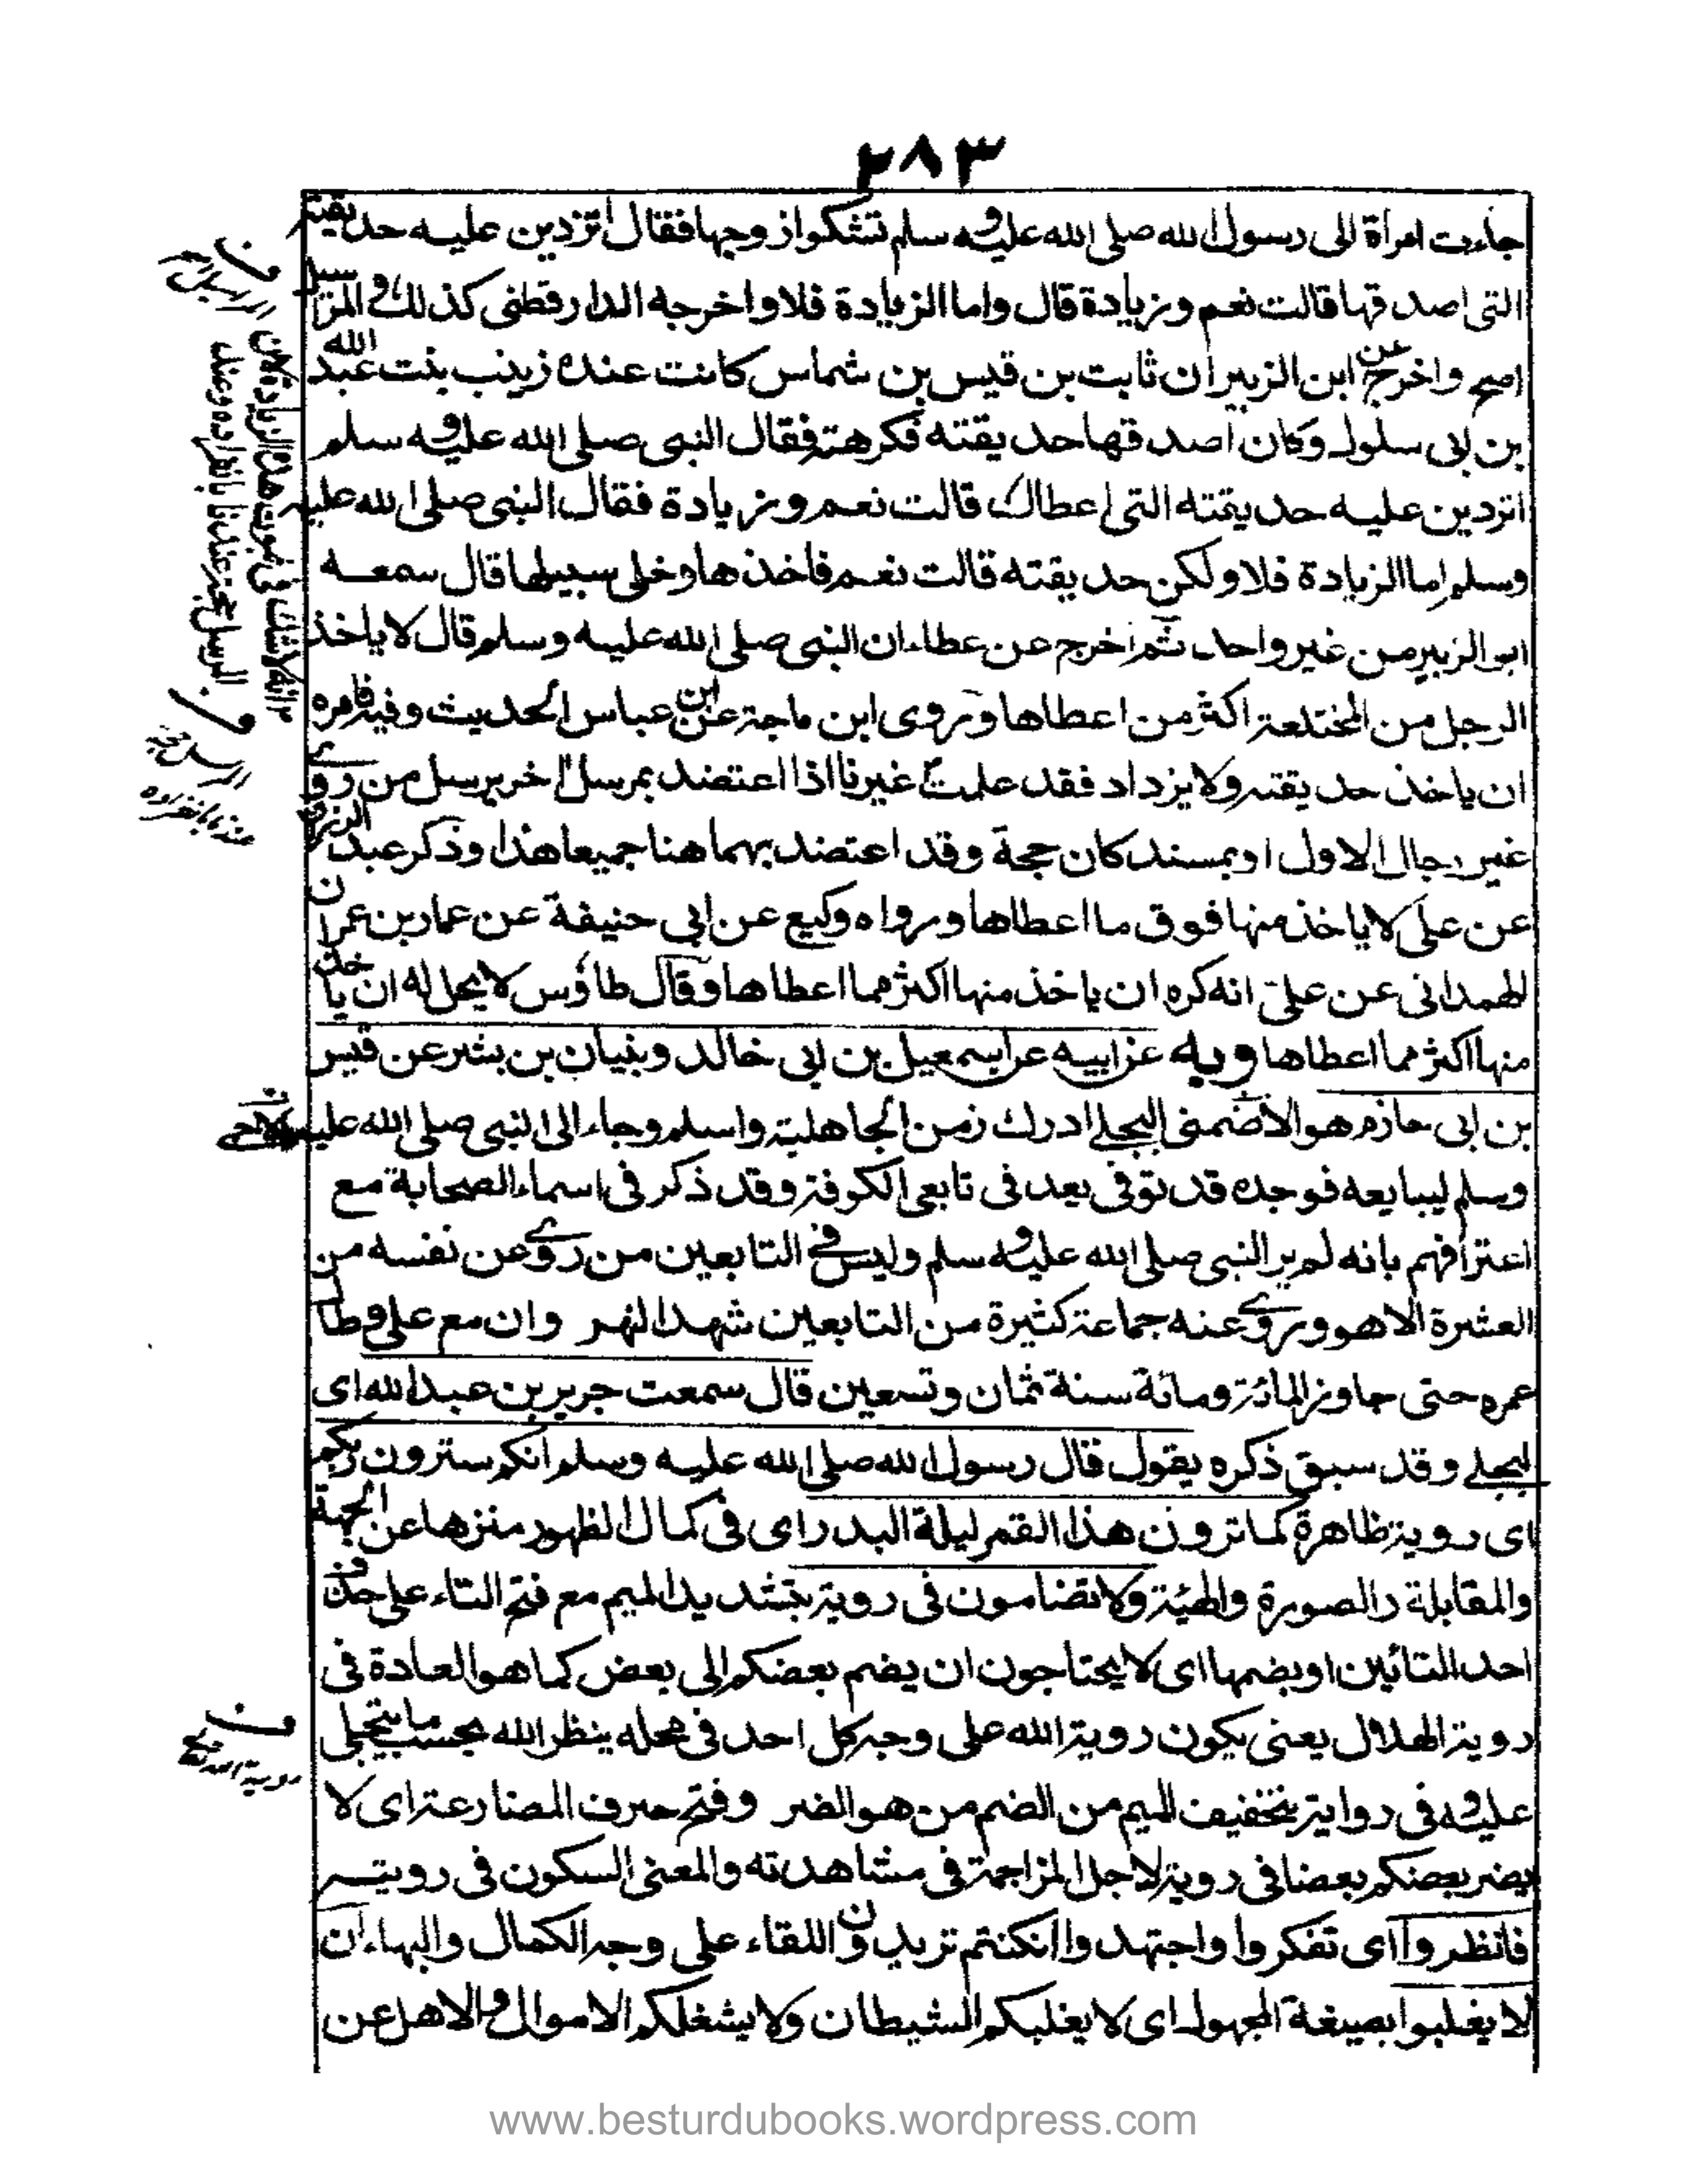 ٢٨٣
جاءت امرأة الى رسول الله صلى الله عليه وسلم تشكوا زوجها فقال أتزدين عليه حديقته
التى اصدقها قالت نعم وزيادة قال واما الزيادة فلا واخرجه الدارقطنى كذلك والمرسل
اصح واخرج عن ابن الزبير ان ثابت بن قيس بن شماس كانت عنده زينب بنت عبد الله
بن ابى سلول وكان اصدقها حديقته فكرهته فقال النبى صلى الله عليه وسلم
اتردين عليه حديقته التى اعطاك قالت نعم وزيادة فقال النبى صلى الله عليه
وسلم اما الزيادة فلا ولكن حديقته قالت نعم فاخذها وخلى سبيلها قال سمعه
ابو الزبير من غير واحد ثم اخرج عن عطاء ان النبى صلى الله عليه وسلم قال لا ياخذ
الرجل من المختلعة اكثر من اعطاها وروى ابن ماجة عن ابن عباس الحديث وفيه فامره
ان ياخذ حديقته ولا يزداد فقد علمت غيرنا اذا اعتضد بمرسل اخر يرسل من روى
غير رجال الاول او بمسند كان حجة وقد اعتضد بهما هنا جميعا هذا وذكر عبد الرزاق
عن على لا ياخذ منها فوق ما اعطاها ورواه وكيع عن ابى حنيفة عن عمار بن عمران
الهمدانى عن على انه كره ان ياخذ منها اكثر مما اعطاها وقال طاؤس لا يحل له ان ياخذ
منها اكثر مما اعطاها وبه عن ابيه عن اسمعيل بن ابى خالد وبنيان بن بشر عن قيس
بن ابى حازم هو الاضمنى البجلى ادرك زمن الجاهلية واسلم وجاء الى النبى صلى الله عليه
وسلم ليبايعه فوجده قد توفى يعد فى تابعى الكوفة وقد ذكر فى اسماء الصحابة مع
اعترافهم بانه لم ير النبى صلى الله عليه وسلم وليس فى التابعين من روى عن نفسه من
العشرة الا هو وروى عنه جماعة كثيرة من التابعين شهد النهروان مع على وطال
عمره حتى جاوز المائة ومائة سنة ثمان وتسعين قال سمعت جرير بن عبد الله اى
البجلى وقد سبق ذكره يقول قال رسول الله صلى الله عليه وسلم انكم سترون ربكم
اى روية ظاهرة كما ترون هذا القمر ليلة البدر اى فى كمال الظهور منزها عن الجهة
والمقابلة والصورة والهيئة ولا تضامون فى روية بتشديد الميم مع فتح التاء على حذف
احد التائين او بضمها اى لا يحتاجون ان يضم بعضكم الى بعض كما هو العادة فى
روية الهلال يعنى يكون روية الله على وجه كل احد فى محله ينظر الله بحسب ما يتجلى
عليه وفى رواية بتخفيف الميم من الضم من هو الضر وفتح حرف المضارعة اى لا
يضر بعضكم بعضا فى روية لاجل المزاجمة فى مشاهدته والمعنى السكون فى رويته
فانظروا اى تفكروا واجتهدوا ان كنتم تريدون اللقاء على وجه الكمال والبهاء ان
لا يغلبوا بصيغة المجهول اى لا يغلبكم الشيطان ولا يشغلكم الاموال والاهل عن
www.besturdubooks.wordpress.com